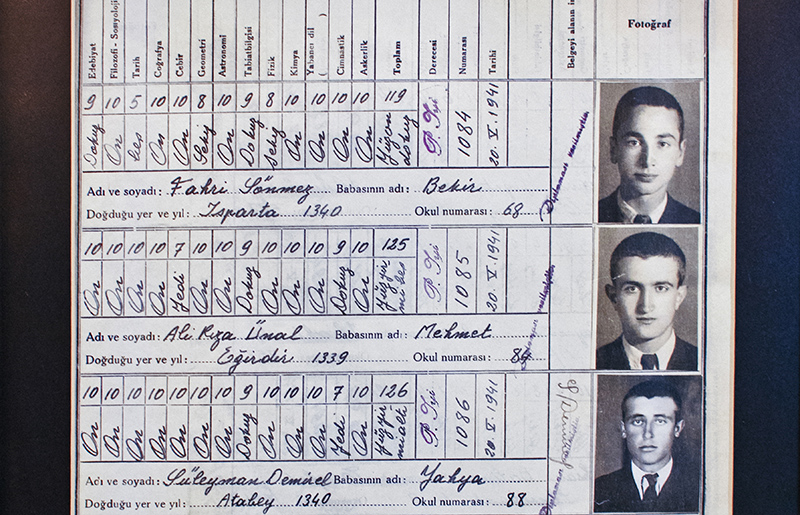 Edebiyat Filozofi - Sosyoloji Tarih Coğrafya Cebir Geometri Astronomi Tabiatbilgisi Fizik Kimya Yabancı dil ( ) Cimnastik Askerlik Toplam Derecesi Numarası Tarihi Belgeyi alanın Fotoğraf
9 10 5 10 10 8 10 9 8 10 10 10 10 119
Dokuz On beş On On Sekiz On Dokuz Sekiz On On On On Yüzon dokuz P. İyi 1084 20.V.1941
Adı ve soyadı: Fahri Sönmez Babasının adı: Bekir
Doğduğu yer ve yıl: Isparta 1340 Okul numarası: 68
10 10 10 10 7 10 10 9 10 10 10 9 10 125
On On On On Yedi On On Dokuz On On On Dokuz On Yüzyir mi beş P. İyi 1085 20.V.1941
Adı ve soyadı: Ali Rıza Ünal Babasının adı: Mehmet
Doğduğu yer ve yıl: Eğirdir 1339 Okul numarası:
10 10 10 10 10 10 10 9 10 10 10 7 10 126
On On On On On On On Dokuz On On On Yedi On Yüzyir mialtı P. İyi 1086 20.V.1941
Adı ve soyadı: Süleyman Demirel Babasının adı: Yahya
Doğduğu yer ve yıl: Atabey 1340 Okul numarası: 88